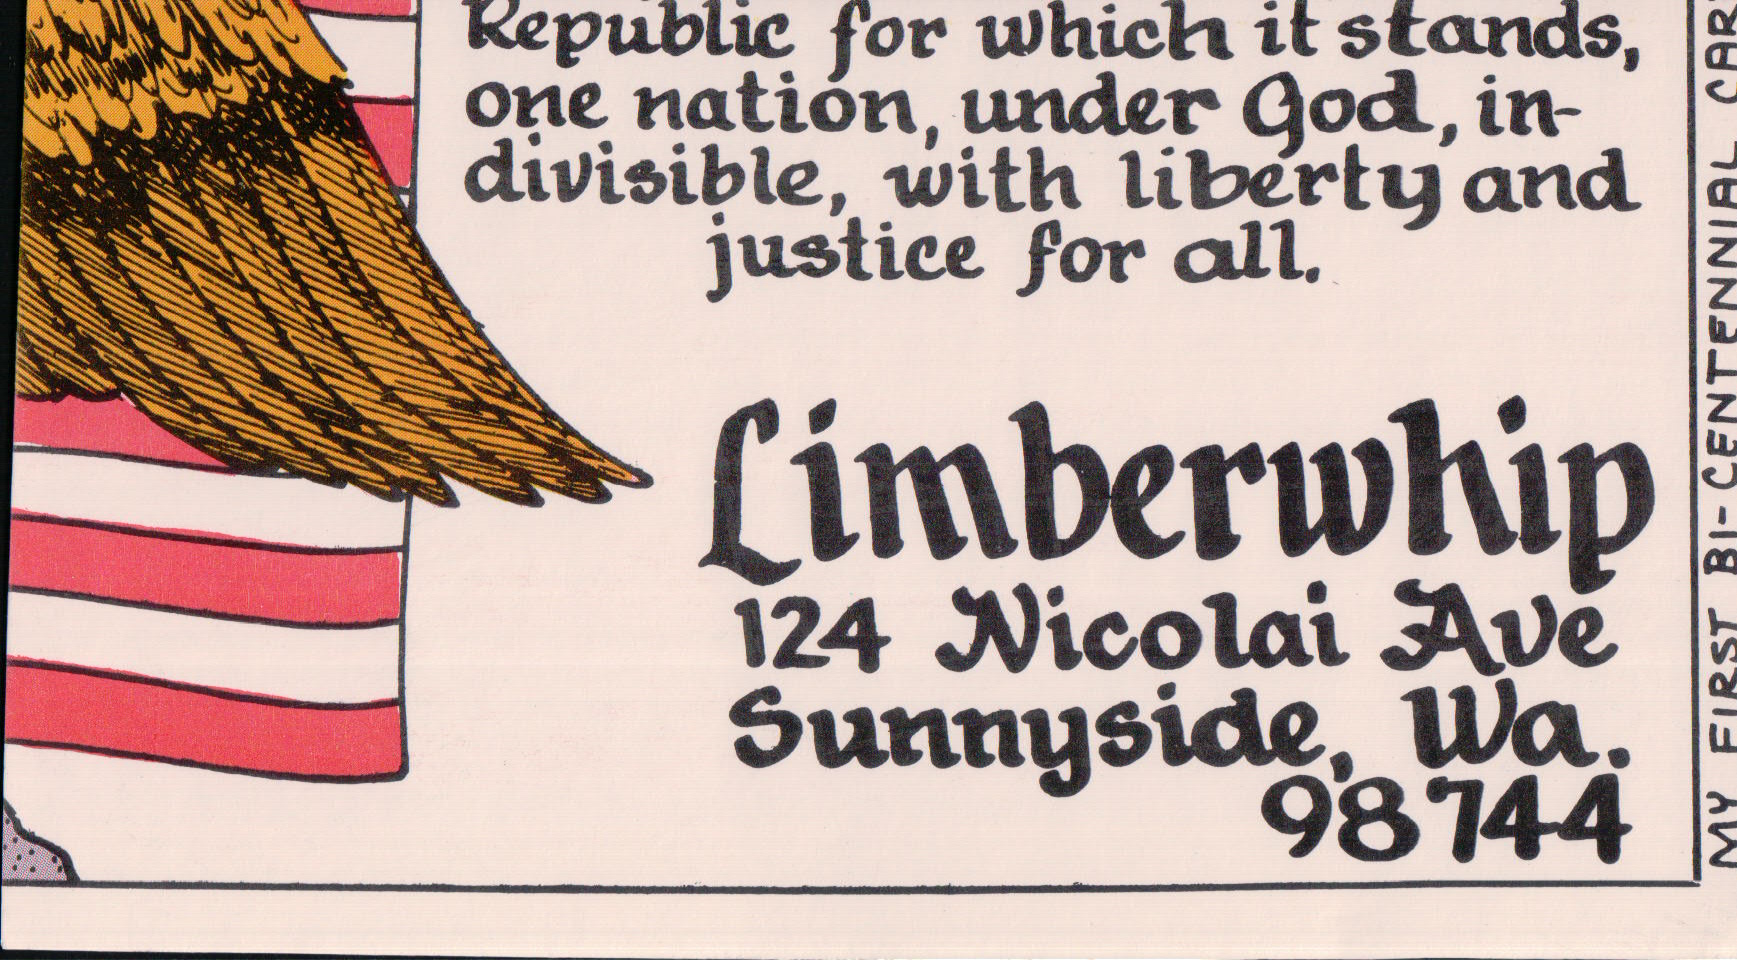 Republic for which it stands,
one nation, under God, in-
divisible, with liberty and
justice for all.
Limberwhip
124 Nicolai Ave
Sunnyside, Wa.
98744
MY FIRST BI-CENTENNIAL CAR